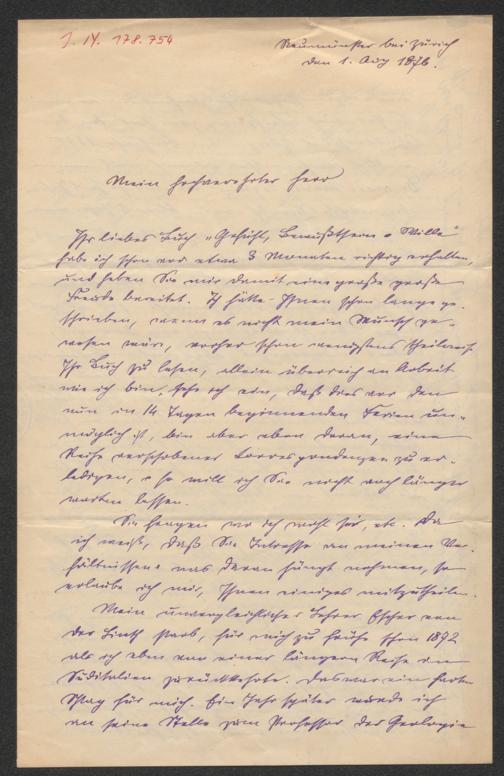 I. N. 178.754
Neumünster bei Zürich
den 1. Aug 1876.
Mein hochverehrter Herr
Ihr liebes Buch „Gefühl, Bewußtsein u Wille"
habe ich schon vor etwa 3 Monaten richtig erhalten,
und haben Sie mir damit eine große große
Freude bereitet. Ich hätte Ihnen schon lange ge-
schrieben, wenn es nicht mein Wunsch ge-
wesen wäre, vorher schon wenigstens theilweise
Ihr Buch zu lesen, allein überreich an Arbeit
wie ich bin, sehe ich ein, daß dies vor den
nun in 14 Tagen beginnenden Ferien un-
möglich ist, bin aber eben daran, eine
Reihe verschobener Correspondenzen zu er-
ledigen, u so will ich Sie nicht noch länger
warten lassen.
Sie fragen wo ich wohl sei, etc. Da
ich weiß, daß Sie Interesse an meinen Ver-
hältnissen u was daran hängt nehmen, so
erlaube ich mir, Ihnen einiges mitzutheilen.
Mein unvergleichlicher Lehrer, Escher von
der Linth starb, für mich zu frühe schon 1872
als ich eben von einer längern Reise in
Süditalien zurückkehrte. Das war ein harter
Schlag für mich. Ein Jahr später wurde ich
an seine Stelle zum Professor der Geologie